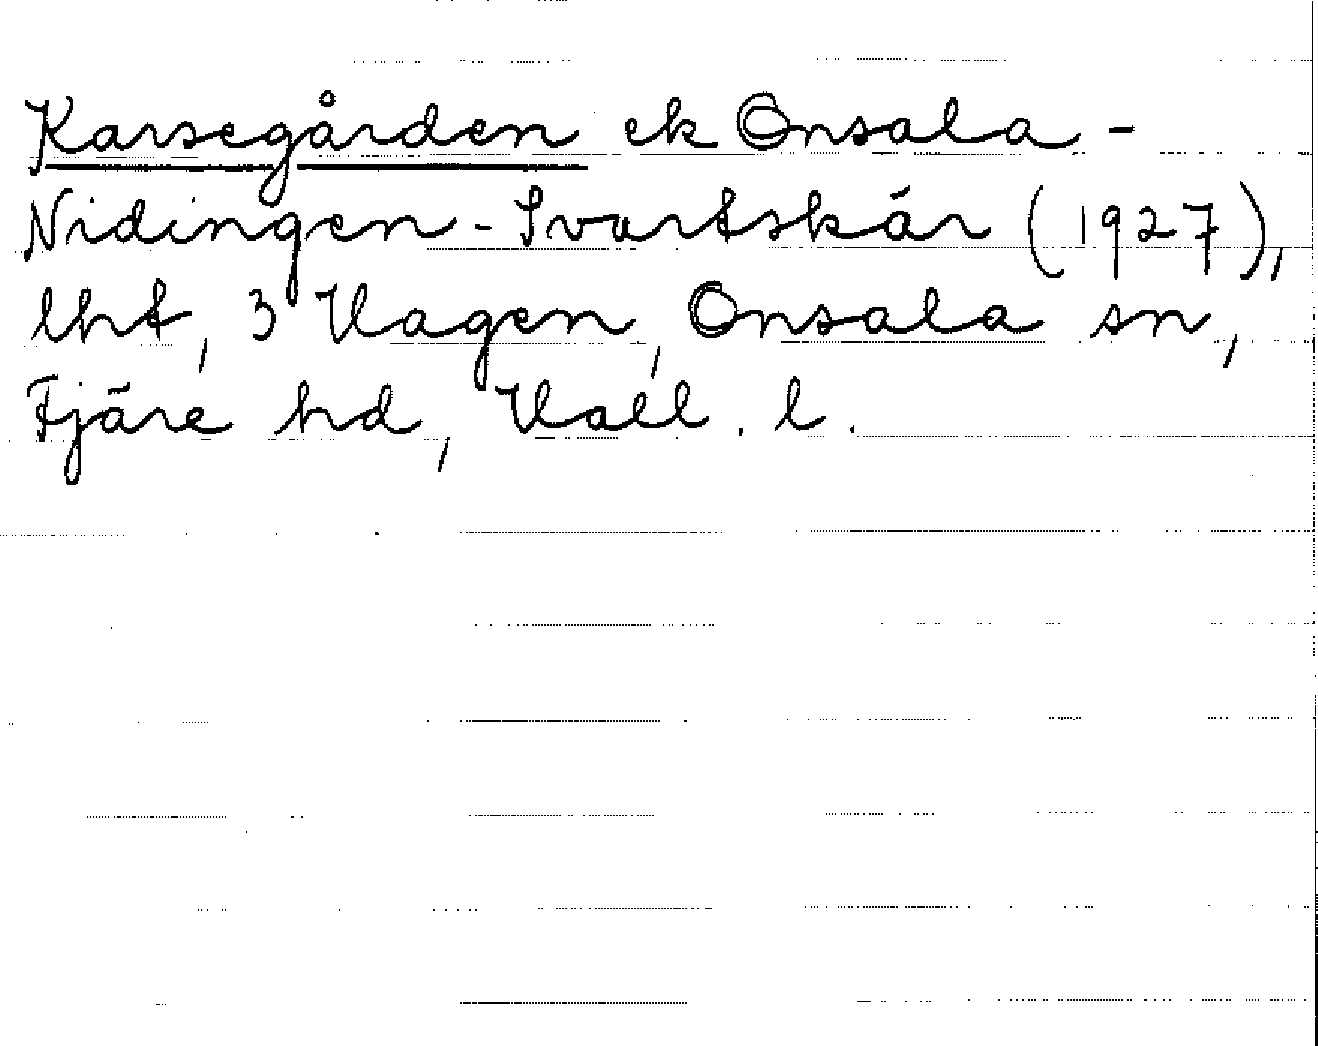 Karsegården ek Onsala -
Nidingen - Svartskär (1927),
lht, 3 Hagen, Onsala sn,
Fjäre hd, Hall. l.